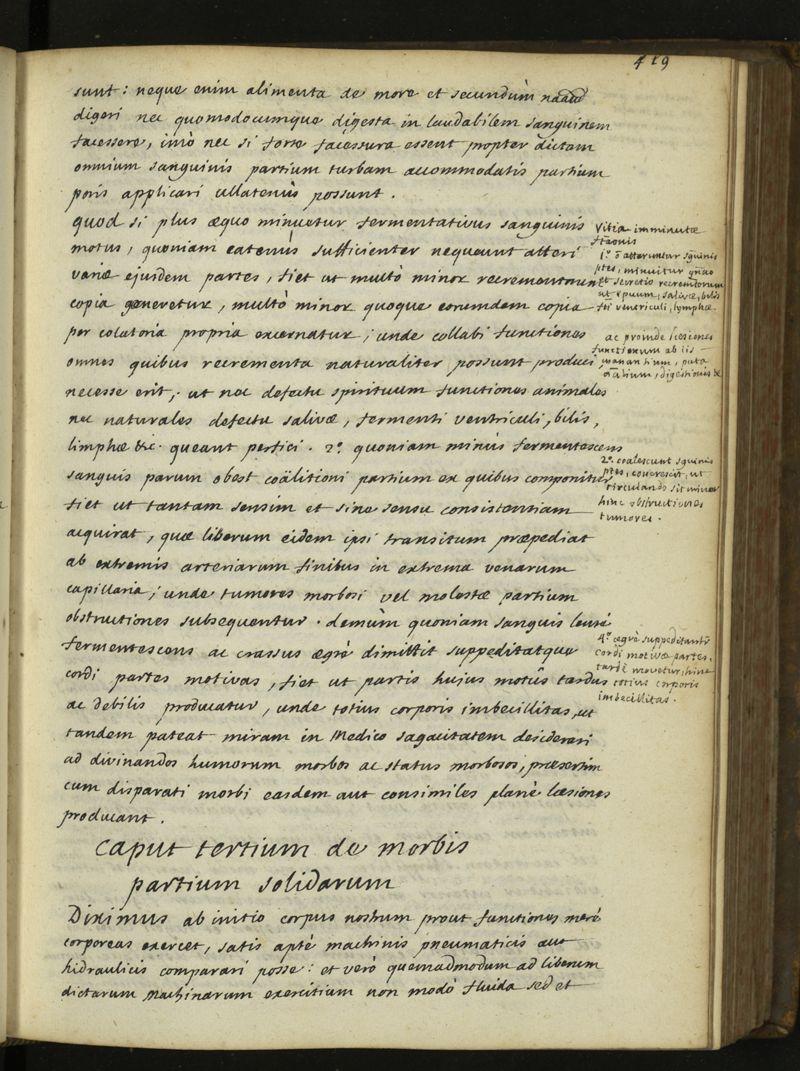 419
sunt: neque enim alimenta de more et secundùm
digeri nec quomodocumque digesta in laudabilem sanguinem
facessere, imò nec si forte facessura essent propter dictam
omnium sanguinis partium turbam accommodatis partium
poris applicari ullatenùs possunt.
quod si plus æquo minuetur fermentativus sanguinis
motus, quoniam eatenùs sufficienter nequeunt atteri
variæ ejusdem partes, fiet ut multò minor recrementorum
copia generetur, multò minor quoque eorumdem copia
per colatoria propria excernatur; unde collabi functiones
omnes quibus recrementa naturaliter possunt produci,
necesse erit, ut nec defectu spirituum functiones animales
nec naturales defectu salivæ, fermenti ventriculi, bilis,
limphæ &c. queant perfici. 2º. quoniam minùs fermentescens
sanguis parum obest coälitioni partium ex quibus componitur
fiet ut tantam sensim et sine sensu consistentiam
acquirat, quæ liberum eidem ipsi transitum præpediat
ab extremis arteriarum finibus in extrema venarum
capillaria; unde tumores morbosi vel molestæ partium
obstructiones subsequentur. demùm quoniam sanguis lentè
fermentescens ac crassus ægrè dimittit suppeditatque
cordi partes motivas, fiet ut partis hujus motûs tardus
ac debilis producatur, unde totius corporis imbecillitas, ut
tandem pateat miram in Medico sagacitatem desiderari
ad divinandos humorum morbos ac status morbosos, præsertim
cum disparati morbi easdem aut consimiles planè læsiones
producant.
Caput tertium de morbis
partium solidarum
Diximus ab initio corpus nostrum prout functiones merè
corporeas exercet, satis aptè machinis pneumaticis aut
hidraulicis comparari posse: et verò quemadmodum ad liberum
dictarum Machinarum exercitium non modò fluida sed et
Vitia imminutæ
1º. ō atteruntur sguinis
ptes, minuitur
et secretio recrementorum
ut spuum, salivæ, bilis
fti ventriculi, lymphæ.
ac proinde læsiones
functionum ab iis
manantium, puta
digestionis &c
2º. coalescunt sguinis
ptes, ut
circulando sit minor
hinc obstructiones
tumores.
4º. ægrè suppeditantur
cordi motivæ partes,
tardè movetur, hinc
totius corporis
imbecillitas.